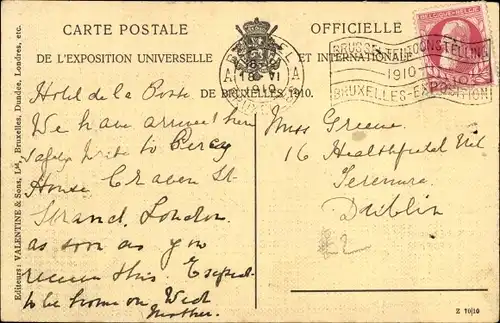 CARTE POSTALE OFFICIELLE
DE L'EXPOSITION UNIVERSELLE ET INTERNATIONALE
DE BRUXELLES 1910.
BELGIQUE-BELGIË
BRUSSEL-TENTOONSTELLING
1910 1910
BRUXELLES-EXPOSITION
18 VI
1910
Hotel de la Poste
We have arrived here
safely write to Percy
House Craven St
Strand. London.
as soon as you
receive this. Expect
to be home on Wed
Mother.
Miss Greene
16 Healthfield
Terenure
Dublin
Editeurs: VALENTINE & Sons, Ld, Bruxelles, Dundee, Londres, etc.
Z 10/10